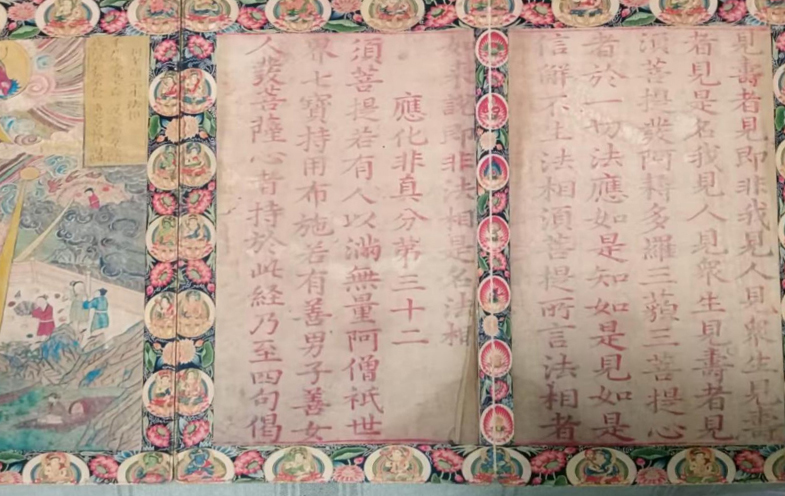 見壽者見即非我見人見衆生見壽
者見是名我見人見衆生見壽者見
須菩提發阿耨多羅三藐三菩提心
者於一切法應如是知如是見如是
信解不生法相須菩提所言法相者
如來說即非法相是名法相
應化非真分第三十二
須菩提若有人以滿無量阿僧祇世
界七寶持用布施若有善男子善女
人發菩薩心者持於此経乃至四句偈